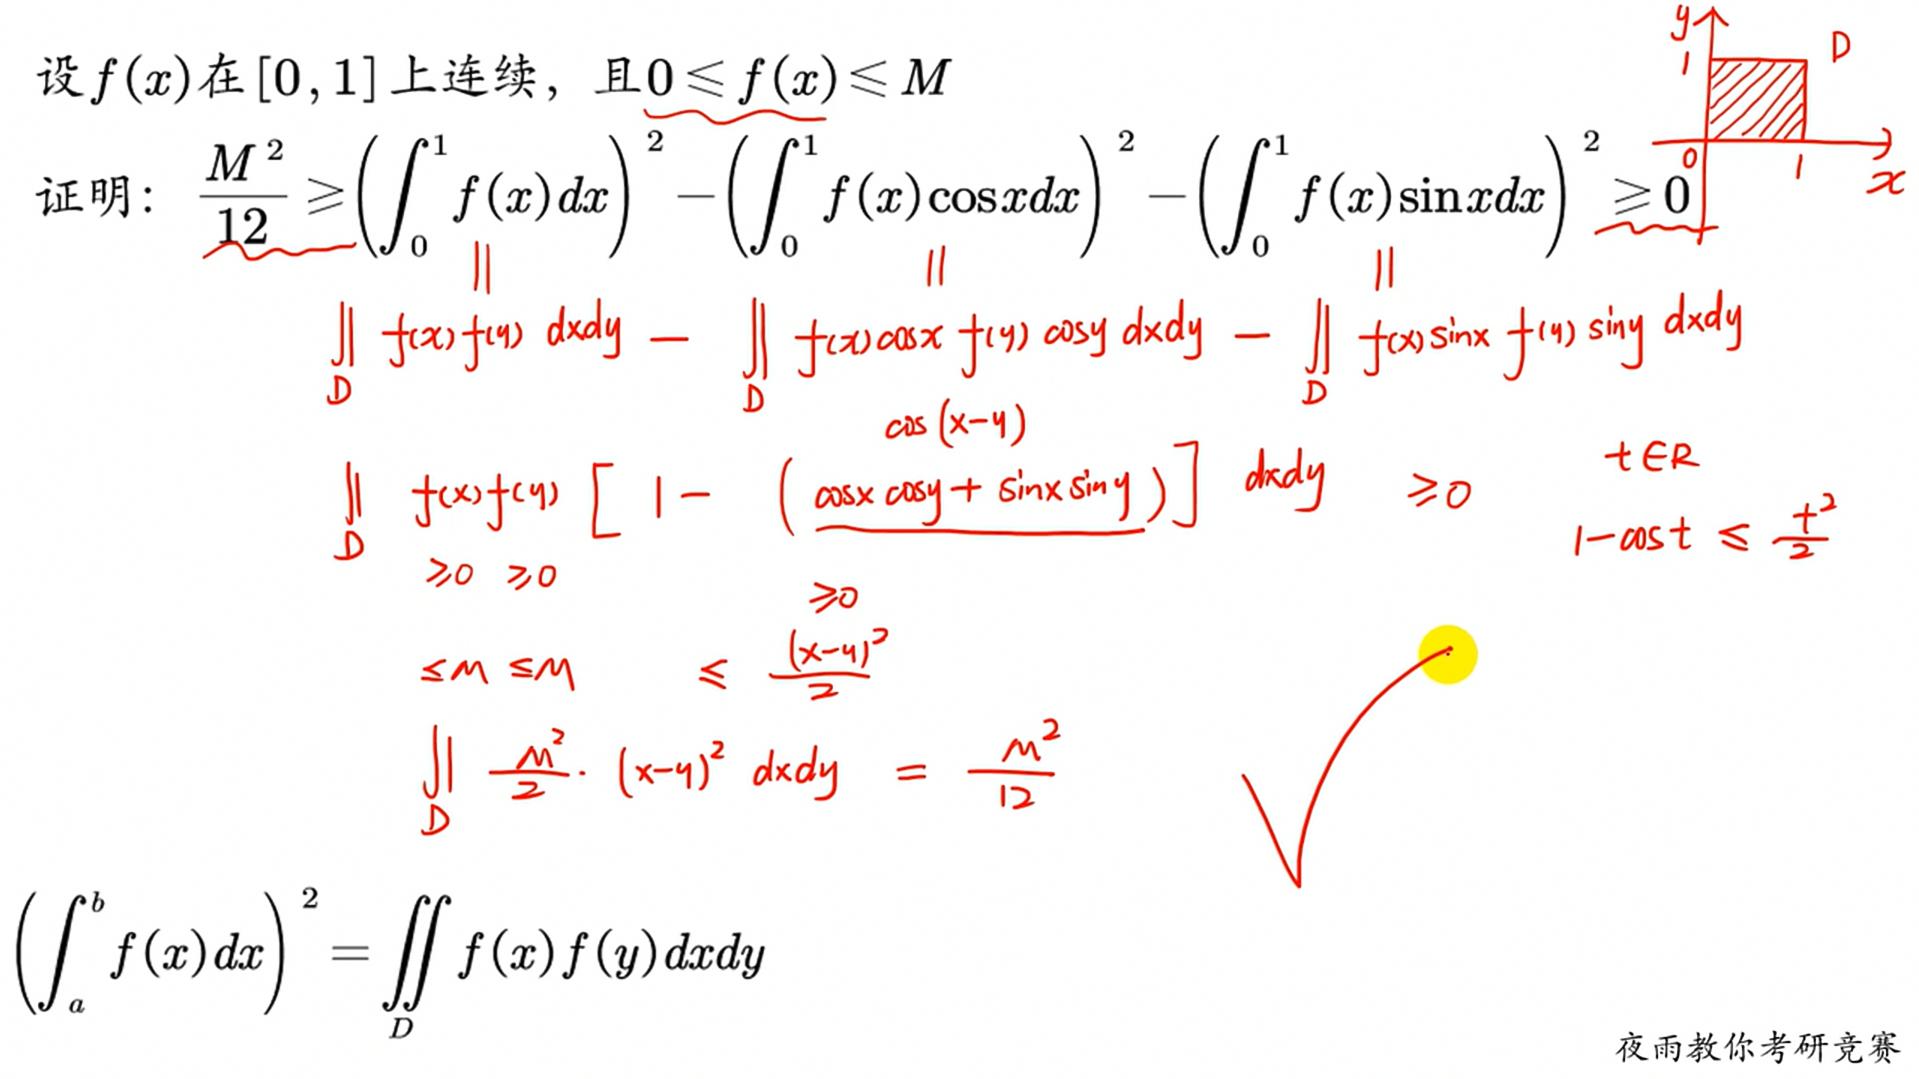 设f(x)在[0,1]上连续，且0≤f(x)≤M
证明： M²/12 ≥ (∫₀¹ f(x)dx)² − (∫₀¹ f(x)cosxdx)² − (∫₀¹ f(x)sinxdx)² ≥ 0
y
1
D
0
1
x
|| || ||
∬_D f(x)f(y) dxdy − ∬_D f(x)cosx f(y)cosy dxdy − ∬_D f(x)sinx f(y)siny dxdy
cos(x-y)
∬_D f(x)f(y) [1 − (cosx cosy + sinx siny)] dxdy ≥0
t∈R
1-cost ≤ t²/2
≥0 ≥0 ≥0
≤M ≤M ≤ (x-y)²/2
∬_D M²/2 · (x-y)² dxdy = M²/12
(∫ₐᵇ f(x)dx)² = ∬_D f(x)f(y)dxdy
夜雨教你考研竞赛